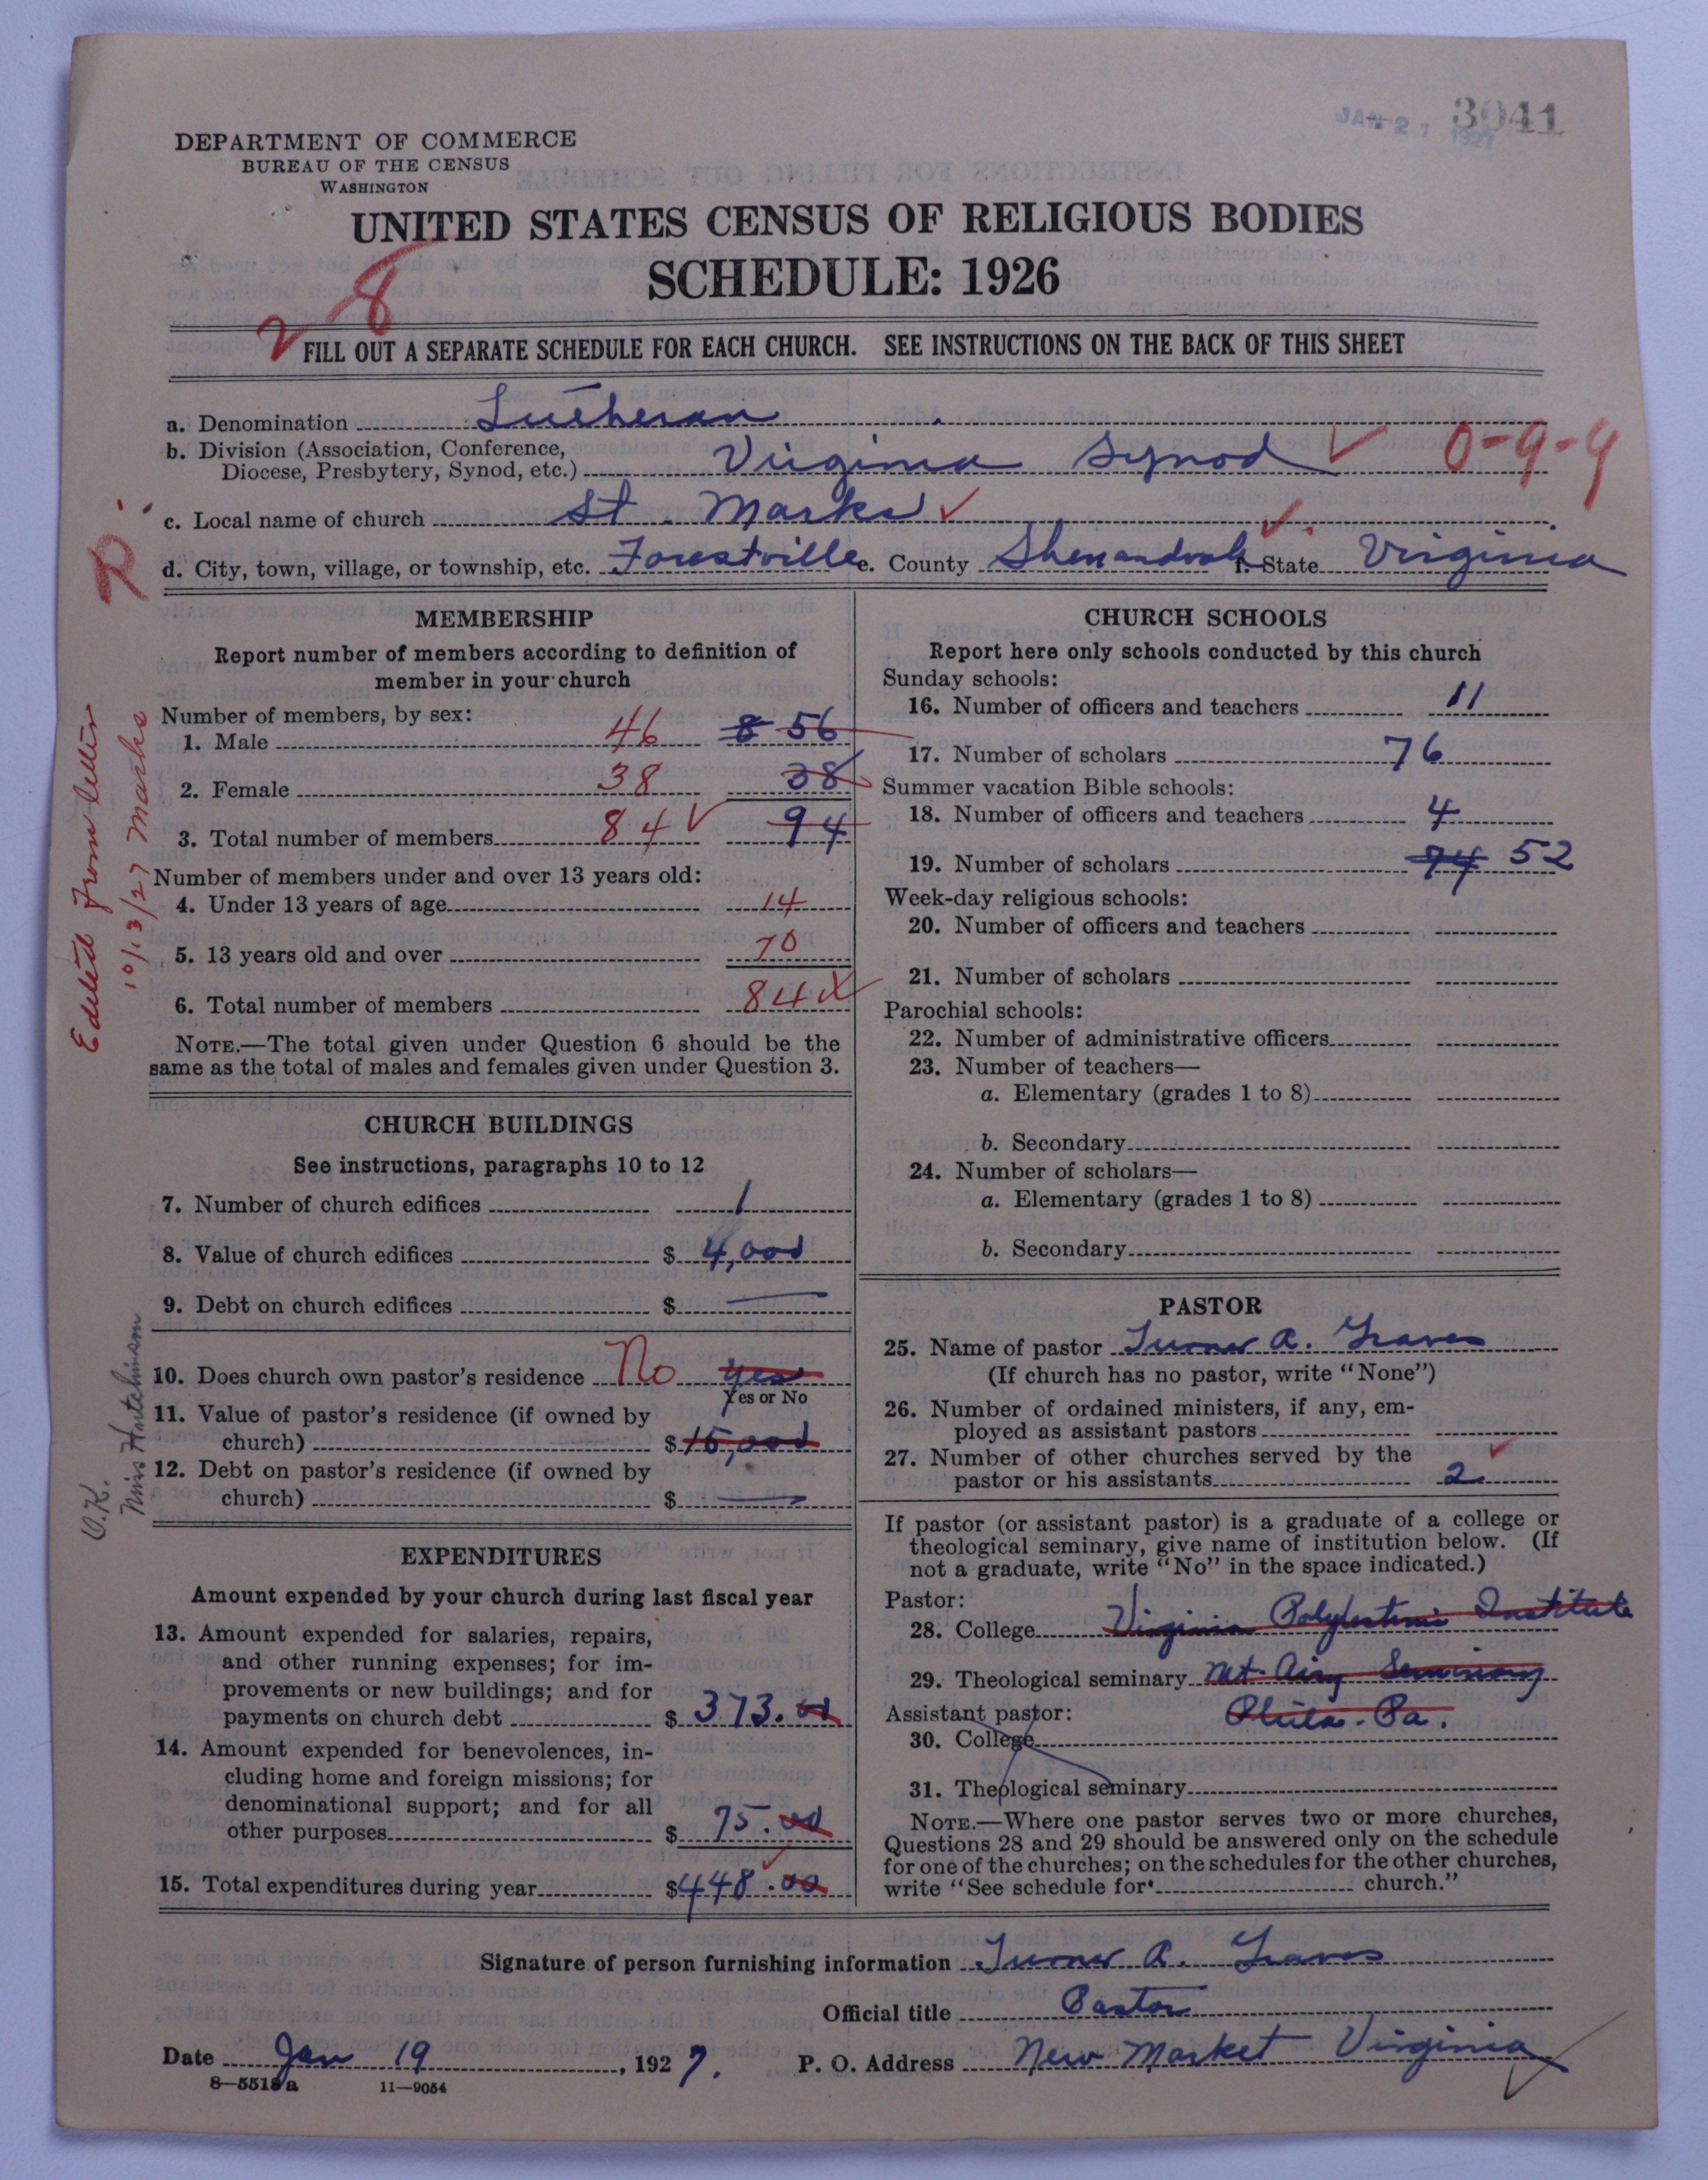 JAN 21 1927 3041
DEPARTMENT OF COMMERCE
BUREAU OF THE CENSUS
WASHINGTON
UNITED STATES CENSUS OF RELIGIOUS BODIES
SCHEDULE: 1926
8
FILL OUT A SEPARATE SCHEDULE FOR EACH CHURCH. SEE INSTRUCTIONS ON THE BACK OF THIS SHEET
a. Denomination Lutheran
b. Division (Association, Conference,
Diocese, Presbytery, Synod, etc.) Virginia Synod ✓ 0-9-9
c. Local name of church St. Marks ✓
d. City, town, village, or township, etc. Forestville e. County Shenandoah f. State Virginia
MEMBERSHIP
Report number of members according to definition of
member in your church
Number of members, by sex:
1. Male 46 8 56
2. Female 38 38
3. Total number of members 84 ✓ 94
Number of members under and over 13 years old:
4. Under 13 years of age 14
5. 13 years old and over 70
6. Total number of members 84
NOTE.—The total given under Question 6 should be the
same as the total of males and females given under Question 3.
Edited from letter
10/13/27 Marks
CHURCH BUILDINGS
See instructions, paragraphs 10 to 12
7. Number of church edifices 1
8. Value of church edifices $ 4,000
9. Debt on church edifices $ —
10. Does church own pastor's residence No Yes
Yes or No
11. Value of pastor's residence (if owned by
church) $ 15,000
12. Debt on pastor's residence (if owned by
church) $ —
O.K.
Miss Hutchinson
EXPENDITURES
Amount expended by your church during last fiscal year
13. Amount expended for salaries, repairs,
and other running expenses; for im-
provements or new buildings; and for
payments on church debt $ 373.00
14. Amount expended for benevolences, in-
cluding home and foreign missions; for
denominational support; and for all
other purposes $ 75.00
15. Total expenditures during year $ 448.00
CHURCH SCHOOLS
Report here only schools conducted by this church
Sunday schools:
16. Number of officers and teachers 11
17. Number of scholars 76
Summer vacation Bible schools:
18. Number of officers and teachers 4
19. Number of scholars 74 52
Week-day religious schools:
20. Number of officers and teachers
21. Number of scholars
Parochial schools:
22. Number of administrative officers
23. Number of teachers—
a. Elementary (grades 1 to 8)
b. Secondary
24. Number of scholars—
a. Elementary (grades 1 to 8)
b. Secondary
PASTOR
25. Name of pastor Turner A. Graves
(If church has no pastor, write "None")
26. Number of ordained ministers, if any, em-
ployed as assistant pastors
27. Number of other churches served by the
pastor or his assistants 2 ✓
If pastor (or assistant pastor) is a graduate of a college or
theological seminary, give name of institution below. (If
not a graduate, write "No" in the space indicated.)
Pastor:
28. College Virginia Polytechnic Institute
29. Theological seminary Mt. Airy Seminary
Phila. Pa.
Assistant pastor:
30. College
31. Theological seminary
NOTE.—Where one pastor serves two or more churches,
Questions 28 and 29 should be answered only on the schedule
for one of the churches; on the schedules for the other churches,
write "See schedule for church."
Signature of person furnishing information Turner A. Graves
Official title Pastor
Date Jan 19, 1927. P. O. Address New Market Virginia
8—5518a 11—9054